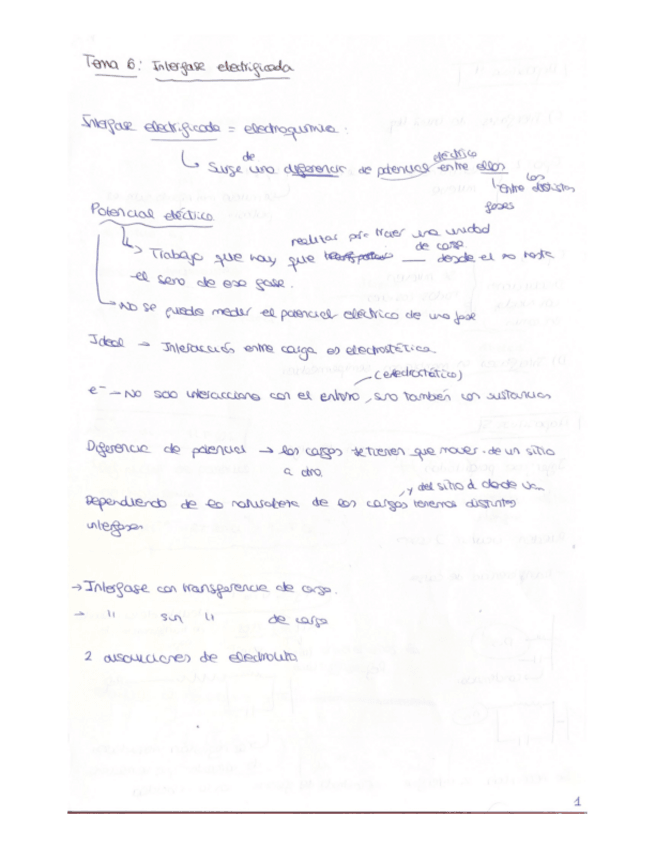 Tema 6: Interfase electrificada
Interfase electrificada = electroquímica:
de
eléctrico
↳ Surge una diferencia de potencial entre ellos
entre los distintos
fases
Potencial eléctrico
realizar para traer una unidad
de carga
↳ Trabajo que hay que desde el ∞ hasta
el seno de esa fase.
↳ No se puede medir el potencial eléctrico de una fase
Ideal → Interacción entre carga es electrostática
(electrostático)
e⁻ – No solo interacciona con el entorno, sino también con sustancias
Diferencia de potencial → las cargas se tienen que mover de un sitio
a otro.
, y del sitio d donde van
Dependiendo de la naturaleza de las cargas tenemos distintas
interfases
→ Interfase con transferencia de carga.
→ " sin " de carga
2 disoluciones de electrolito
1